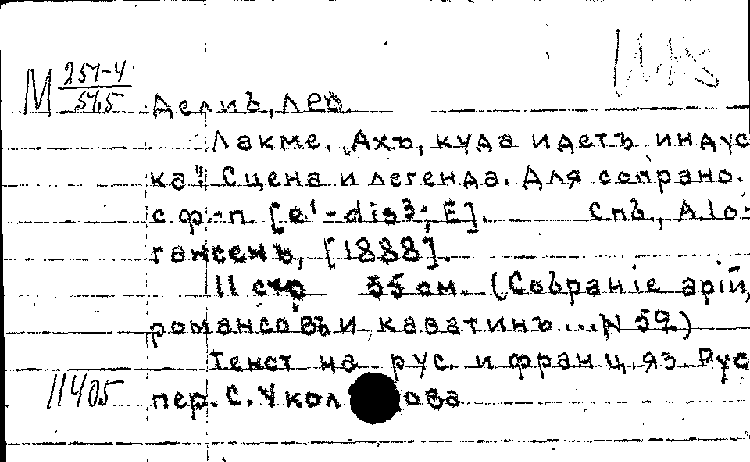 М 251-4
54.5
Делиъ, Лео.
Лакме. „Ахъ, куда идетъ индус
ка" Сцена и легенда. Для сопрано.
с ф.-п. [e¹-dis³; E]. Спъ., А. Іо-
гансенъ, [1888].
11 стр 35 см. (Собраніе арій,
романсовъ и каватинъ... N 59)
Текст на рус. и франц. яз. Рус
11405 пер. С. Укол ова